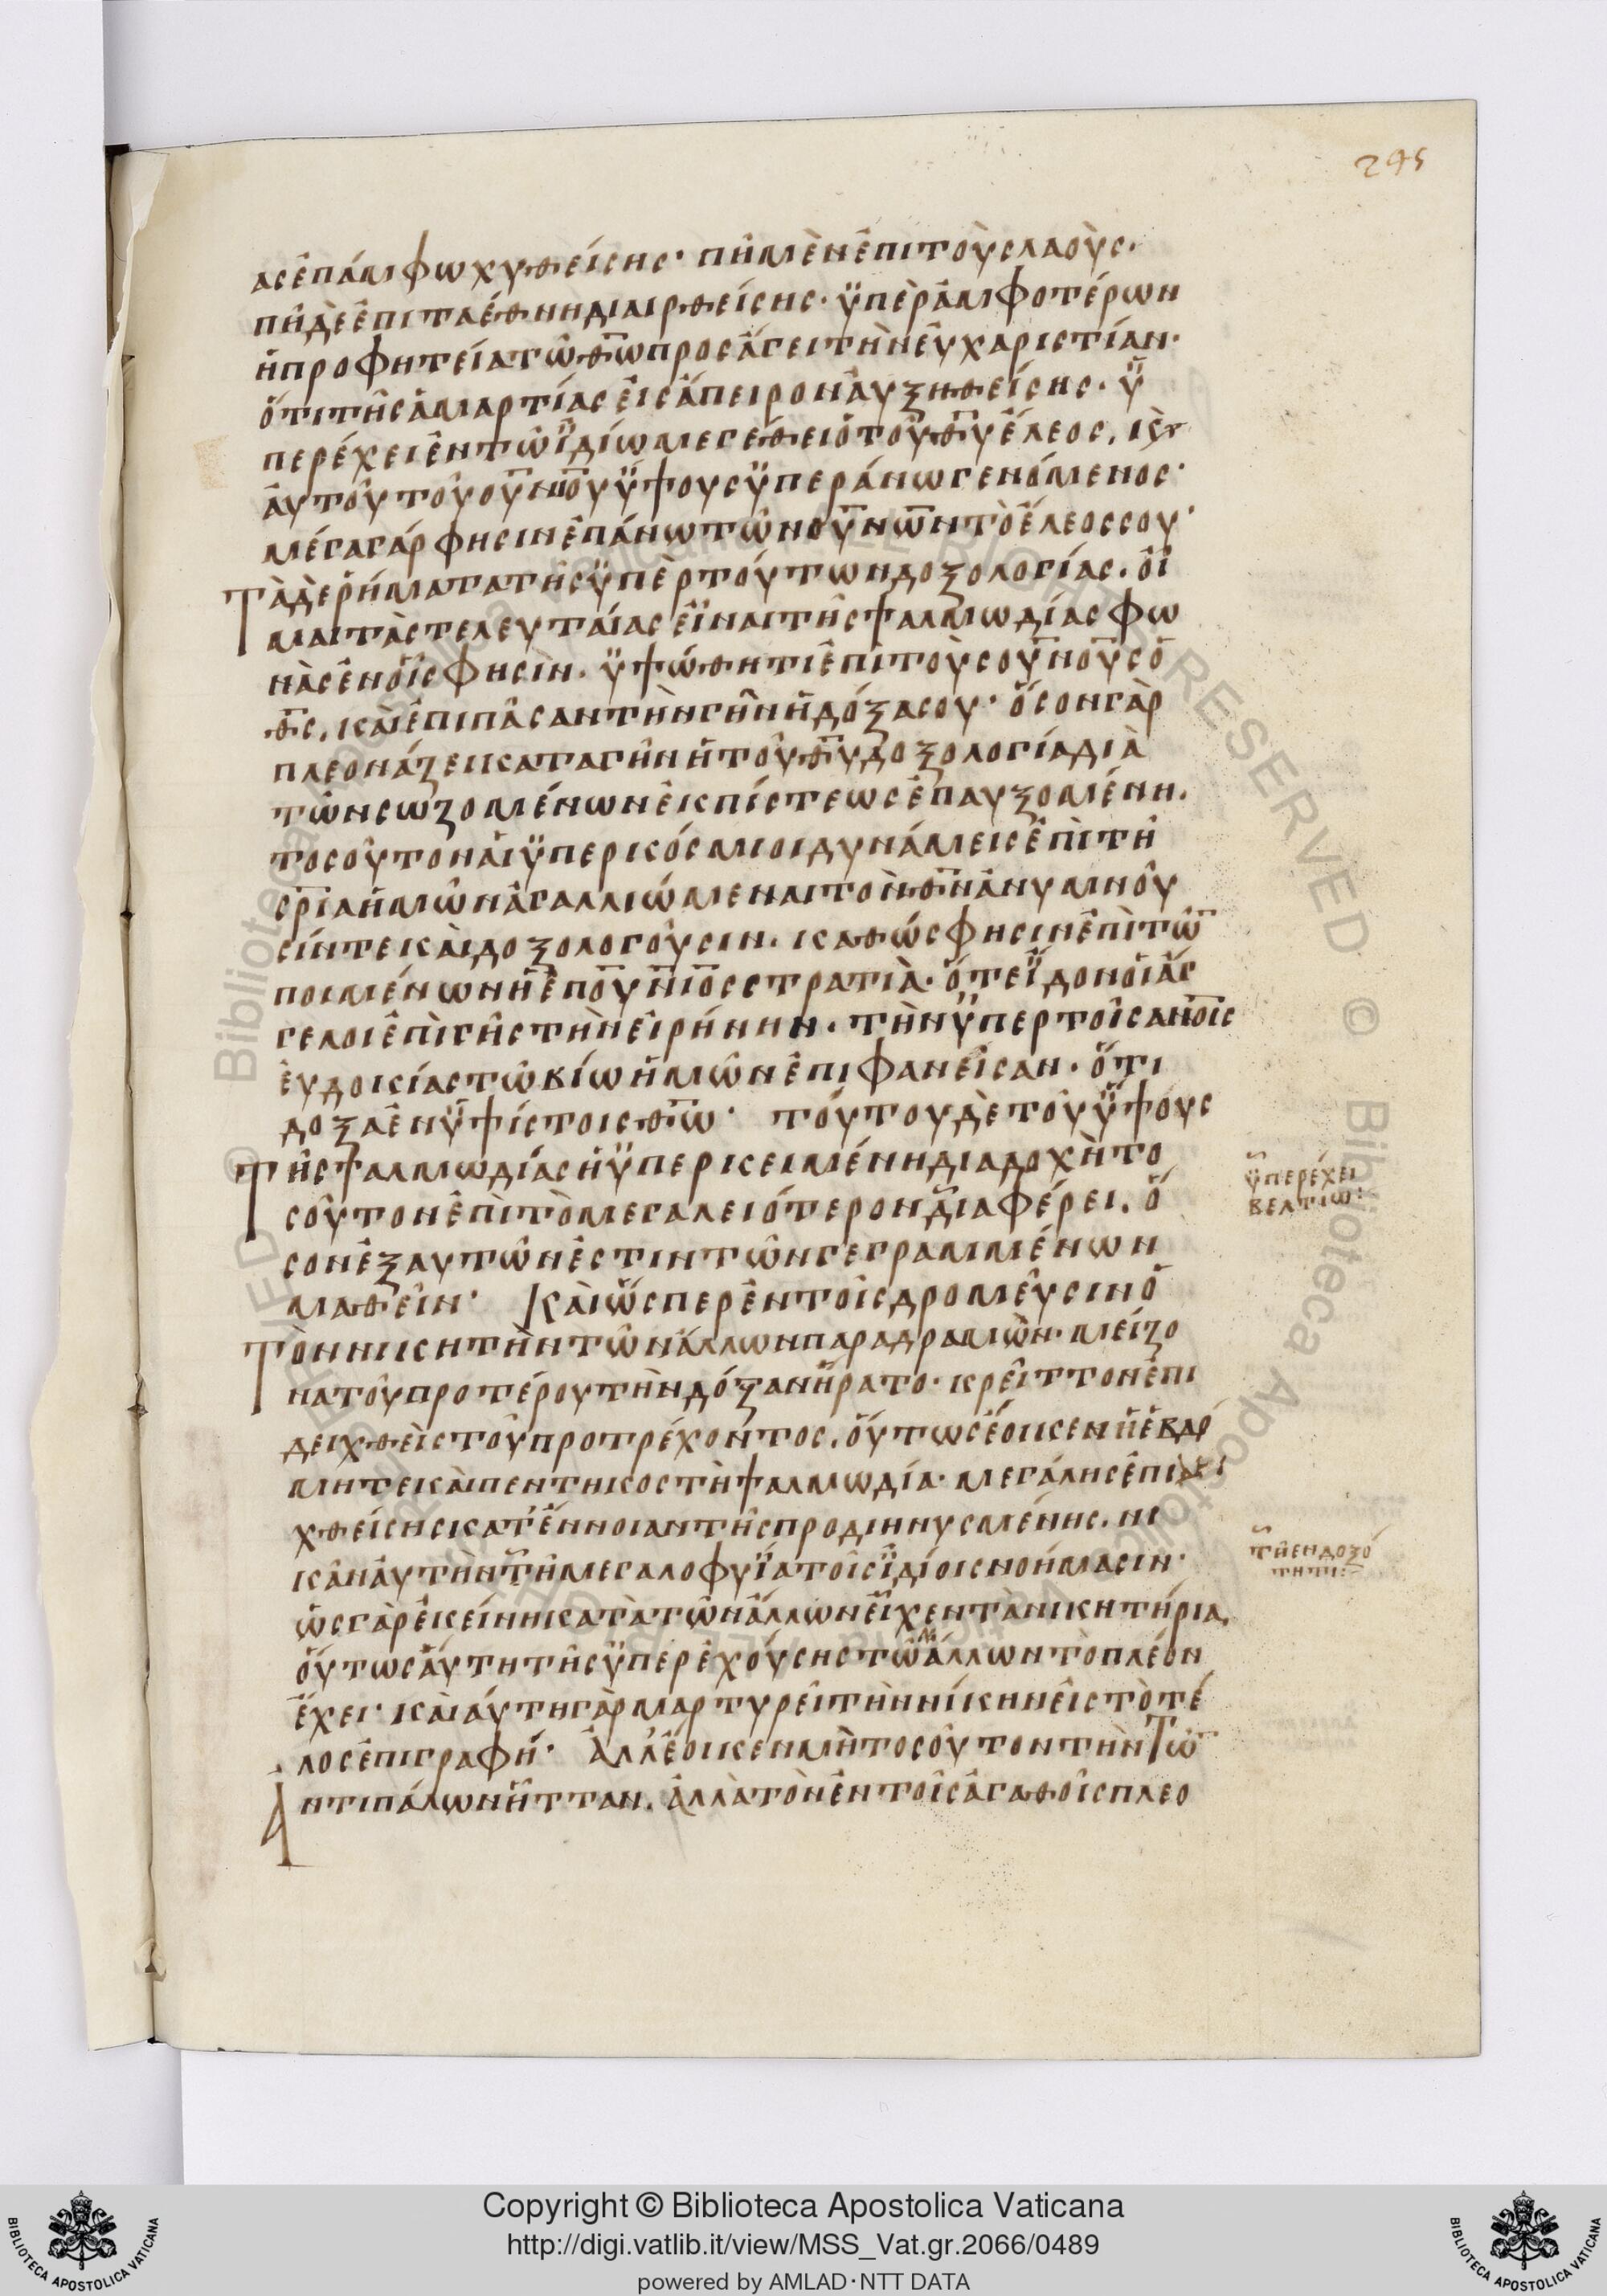 295
ας ἐπ' ἄμφω χυθείσης· πῆ μὲν ἐπὶ τοὺς λαοὺς.
πῆ δὲ ἐπὶ τὰ ἔθνη διαιρθείσης· ὑπὲρ ἀμφοτέρων
ἡ προφητεία τῶ θω προσάγει τὴν εὐχαριστίαν·
ὅτι τῆς ἁμαρτίας εἰς ἄπειρον αὐξηθείσης. ὑ
περέχει ἐν τῶ ἰδίω μεγέθει ὁ τοῦ θυ ἔλεος,
αὐτοῦ τοῦ ουνιου ὕψους ὑπεράνω γενόμενος·
μέγα γάρ φησιν ἐπάνω τῶν ουνων τὸ ἔλεος σου·
Τὰ δὲ ῥήματα τῆς ὑπὲρ τούτων δοξολογίας. οἶ
μαι τὰς τελευταίας εἶναι τῆς ψαλμωδίας φω
νὰς ἐν οἷς φησὶν. ὑψώθητι ἐπὶ τοὺς ουνους ὁ
θς, καὶ ἐπὶ πᾶσαν τὴν γῆν ἡ δόξα σου· ὅσον γὰρ
πλεονάζει κατα γῆν ἡ τοῦ θυ δοξολογία διὰ
τῶν σωζομένων ἐκ πίστεως ἐπαυξομένη.
τοσοῦτον αἱ ὑπερκόσμιοι δυνάμεις ἐπὶ τῆ
σρια ἡμῶν ἀγαλλιώμεναι τὸν θν ἀνυμνοῦ
σίν τε καὶ δοξολογοῦσιν. καθώς φησιν ἐπὶ τῶ
ποιμένων ἡ ἐπουνιος στρατιὰ· ὅτε εἶδον οἱ ἄγ
γελοι ἐπὶ γῆς τὴν εἰρήνην. τὴν ὑπερ τοῖς ανοις
εὐδοκίας τῶ βίω ἡμῶν ἐπιφανεῖσαν. ὅτι
δοξα ἐν ὑψίστοις θω· τούτου δὲ τοῦ ὕψους
Τῆς ψαλμωδίας ἡ ὑπερκειμένη διαδοχὴ το
σοῦτον ἐπὶ τὸ μεγαλειότερον διαφέρει. ὅ
σον ἐξ αυτῶν ἐστιν τῶν γεγραμμένων
μαθεῖν· Καὶ ὥσπερ ἐν τοῖς δρομεῦσιν ὁ
Τὸν νικητὴν τῶν ἄλλων παραδραμὼν· μείζο
να τοῦ προτέρου τὴν δόξαν ἤρατο· κρεῖττον ἐπι
δειχθεὶς τοῦ προτρέχοντος. οὕτως ἔοικεν ἡ ἑβδό
μη τε καὶ πεντηκοστὴ ψαλμωδία· μεγάλης ἐπιδει
χθείσης κατ' ἔννοιαν τῆς προδιηνυσμένης. νι
κᾶν αὐτὴν τῆ μεγαλοφυΐα τοῖς ἰδίοις νοήμασιν·
ὡς γὰρ ἐκείνη κατὰ τῶν ἄλλων εἶχεν τὰ νικητήρια,
οὕτως αὕτη τῆς ὑπερεχούσης τῶν ἄλλων τὸ πλέον
ἔχει· καὶ αὐτη γὰρ μαρτυρεῖ τὴν νίκην εἰς τὸ τέ
λος ἐπιγραφή· Ἀλλ' ἔοικεν μὴ τοσοῦτον τὴν Τῶ
Ἀντιπάλων ἧτταν. ἀλλὰ τὸν ἐν τοῖς ἀγαθοῖς πλεο
ὑπερέχει
βελτίω:
τῆ ἐνδοξό
τητι:
Copyright © Biblioteca Apostolica Vaticana
http://digi.vatlib.it/view/MSS_Vat.gr.2066/0489
powered by AMLAD·NTT DATA
BIBLIOTECA APOSTOLICA VATICANA
BIBLIOTECA APOSTOLICA VATICANA